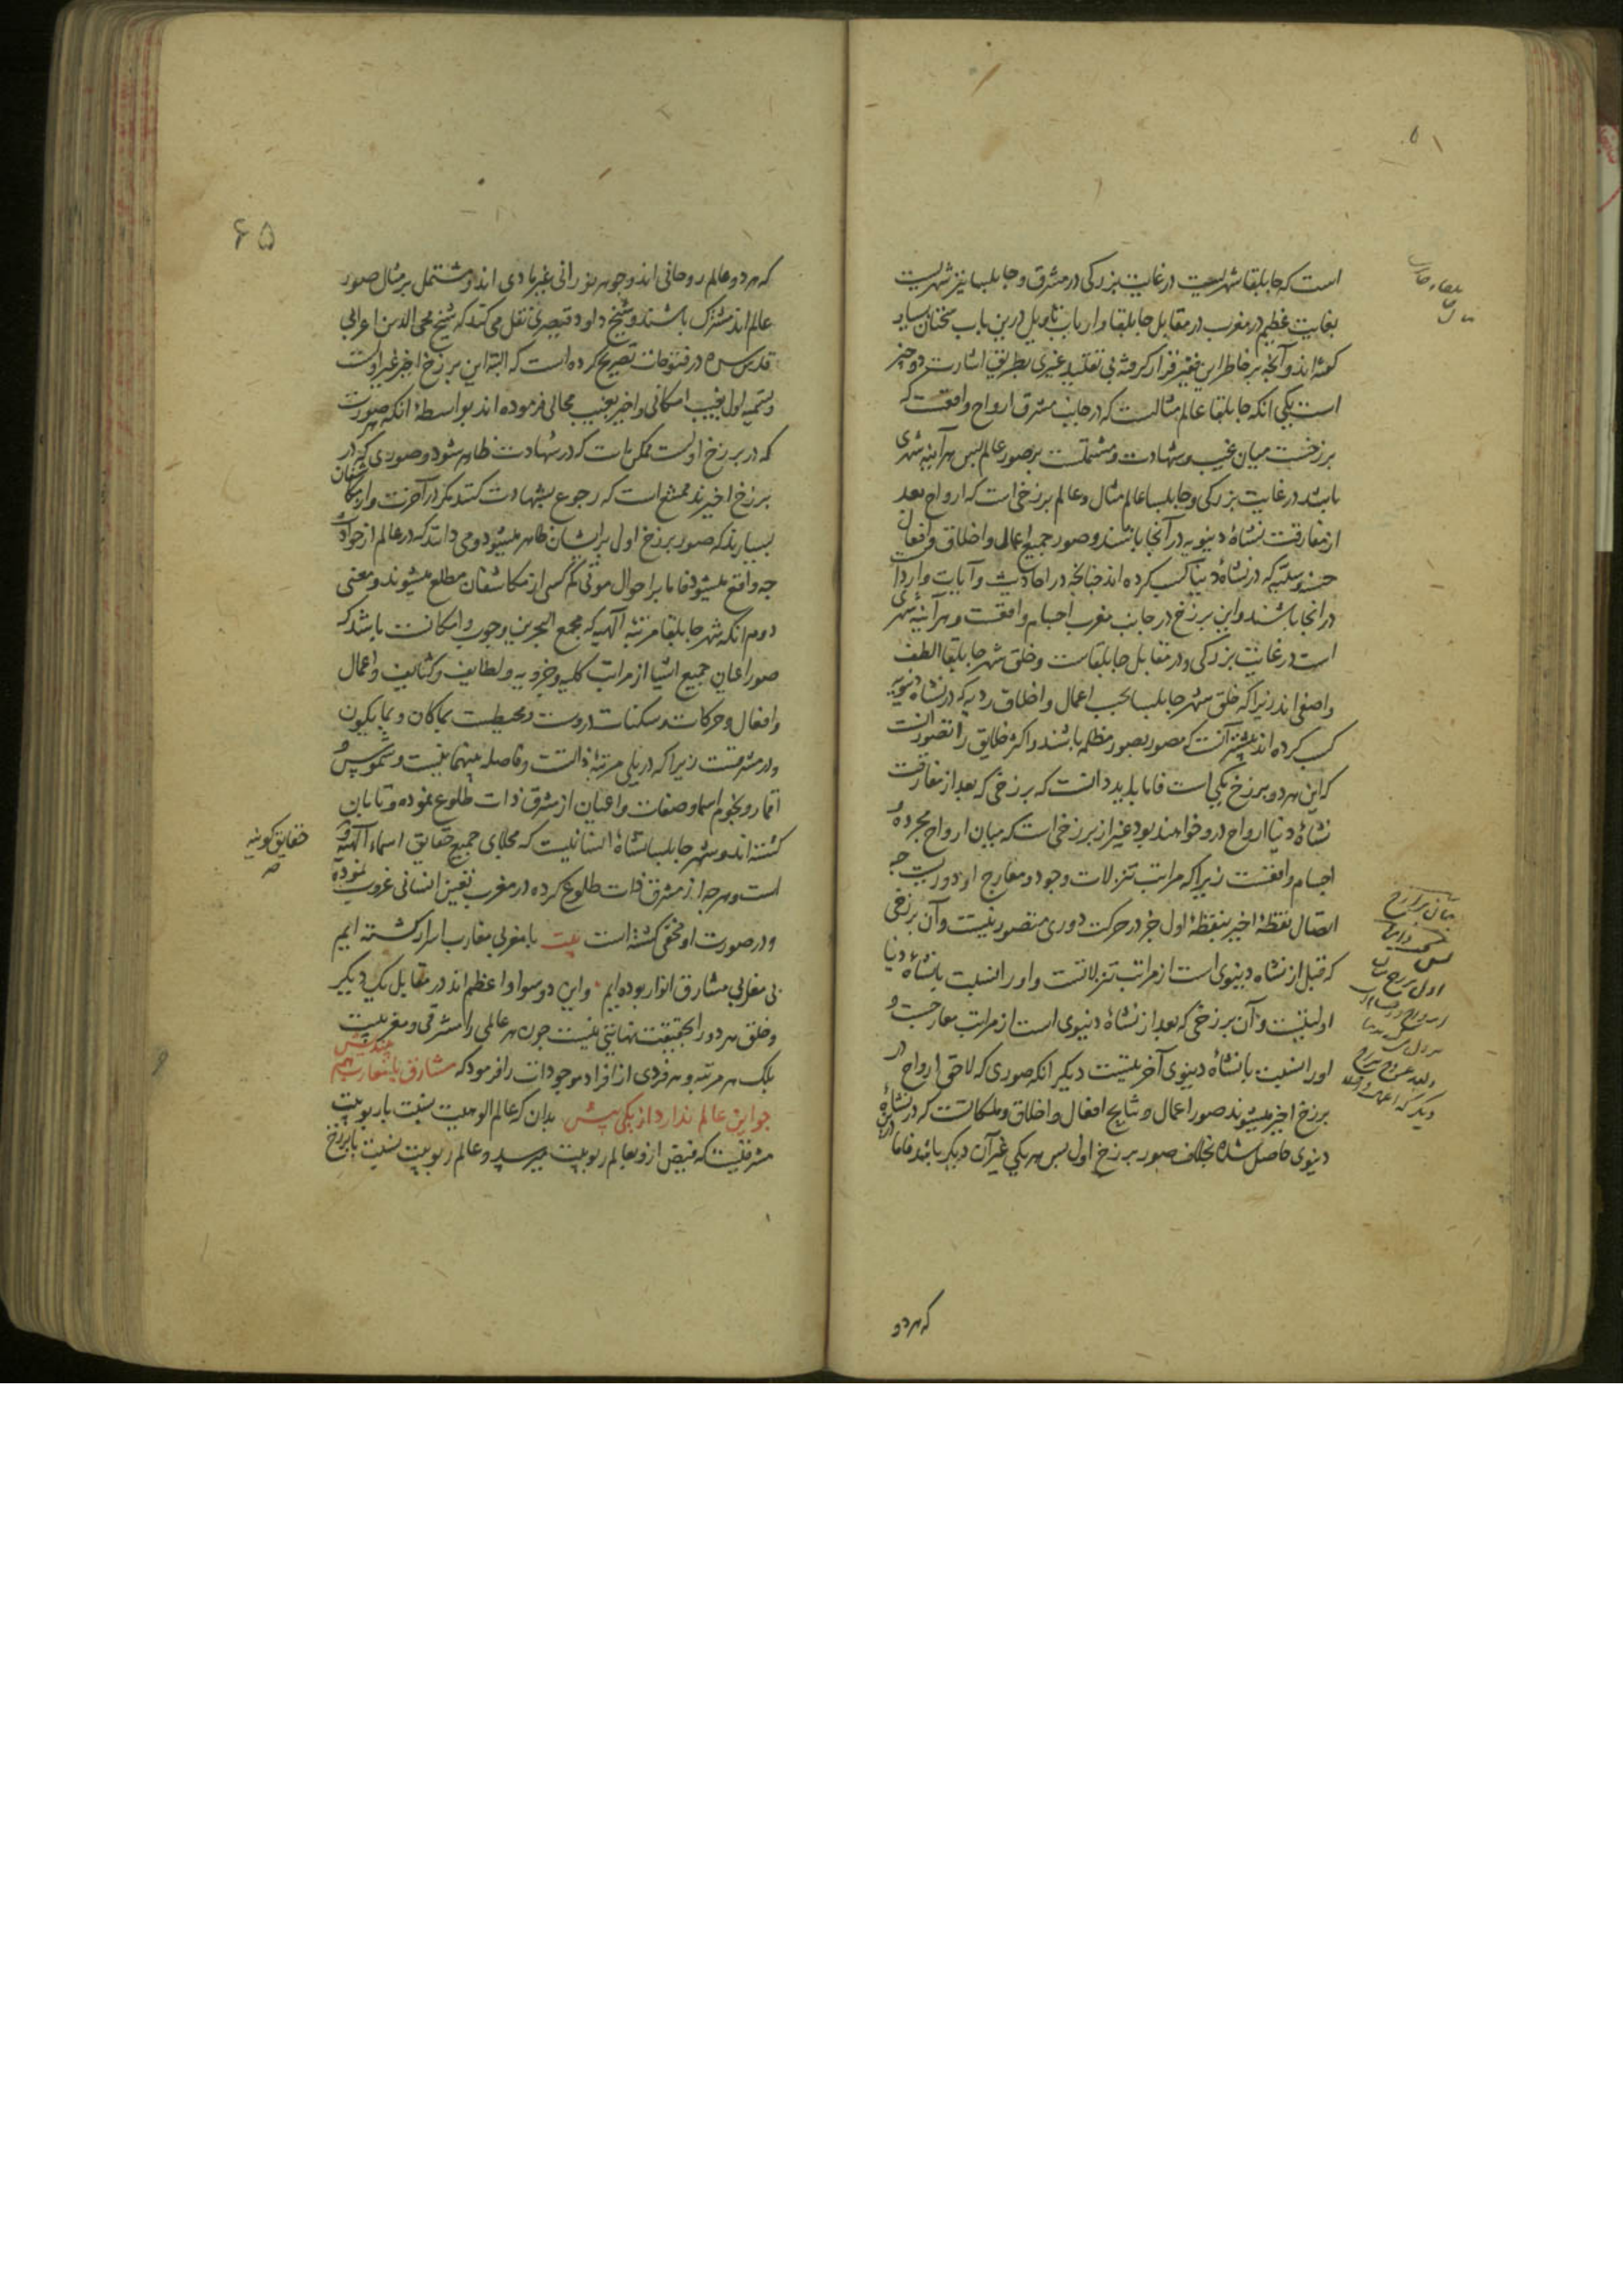 است که جابلقا شهریست در غایت بزرگی در مشرق و جابلسا نیز شهریست
بغایت عظیم در مغرب در مقابل جابلقا و ارباب تاویل درین باب سخنان بسیار
گفته‌اند و آنچه بر خاطر این فقیر قرار گرفته بی تقلید غیری بطریق اشارت دو چیز
است یکی انکه جابلقا عالم مثالست که در جانب مشرق ارواح واقعست که
برزخست میان غیب و شهادت و مشتملست بر صور عالم پس هر آینه شهری
باشد در غایت بزرگی و جابلسا عالم مثال و عالم برزخی است که ارواح بعد
از مفارقت نشاهٔ دنیویه در آنجا باشند و صور جمیع اعمال و اخلاق و افعال
حسنه و سیئه که در نشاهٔ دنیا کسب کرده اند چنانچه در احادیث و آیات وارد است
در انجا باشند و این برزخ در جانب مغرب اجسام واقعست و هر آینه شهری
است در غایت بزرگی و در مقابل جابلقاست و خلق شهر جابلقا الطف
و اصفی اند زیرا که خلق شهر جابلسا بحسب اعمال و اخلاق ردیه که در نشاه دنیویه
کسب کرده اند بیشتر آنست که مصور بصور مظلمه باشند و اکثر خلایق را تصور آنست
که این هر دو برزخ یکی است فاما باید دانست که برزخی که بعد از مفارقت
نشاهٔ دنیا ارواح در و خواهند بود غیر از برزخی است که میان ارواح مجرده و
اجسام واقعست زیرا که مراتب تنزلات وجود و معارج او دوریست چه
اتصال نقطهٔ اخیر بنقطهٔ اول جز در حرکت دوری متصور نیست و آن برزخی
که قبل از نشاه دنیوی است از مراتب تنزلاتست و او را نسبت با نشاهٔ دنیا
اولیتست و آن برزخی که بعد از نشاهٔ دنیوی است از مراتب معارجست و
او را نسبت با نشاهٔ دنیوی آخریتست دیگر انکه صوری که لاحق ارواح در
برزخ اخیر میشوند صور اعمال و نتایج افعال و اخلاق و ملکاتست که در نشاهٔ
دنیوی حاصل شده بخلاف صور برزخ اول پس هر یکی غیر آن دیگر باشد فاما در این
که هر دو
۶۵
که هر دو عالم روحانی اند و جوهر نورانی غیر مادی اند و مشتمل بر مثال صور
عالم اند مشترک باشند و شیخ داود قیصری نقل می کند که شیخ محی الدین اعرابی
قدس سره در فتوحات تصریح کرده است که البته این برزخ اخیر غیر اولست
و تسمیه اول بغیب امکانی و اخیر بغیب محالی فرموده اند بواسطهٔ انکه هر صورت
که در برزخ اولست ممکن است که در شهادت ظاهر شود و صوری که در
برزخ اخیرند ممتنع است که رجوع بشهادت کنند مگر در آخرت و از مکاشفان
بسیارند که صور برزخ اول بر ایشان ظاهر میشود و می دانند که در عالم از حوادث
چه واقع میشود فاما بر احوال موتی کم کسی از مکاشفان مطلع میشوند و معنی
دوم انکه شهر جابلقا مرتبهٔ الهیه که مجمع البحرین وجوب و امکانست باشد که
صور اعیان جمیع اشیا از مراتب کلیه و جزویه و لطایف و کثایف و اعمال
و افعال و حرکات و سکنات دروست و محیطست بما کان و بما یکون
و در مشرقست زیرا که در یلی مرتبهٔ ذاتست و فاصله بینهما نیست و شموس و
اقمار و نجوم اسما و صفات و اعیان از مشرق ذات طلوع نموده و تابان
گشته اند و شهر جابلسا نشاهٔ انسانیست که مجلای جمیع حقایق اسماء الهیه و
حقایق کونیه
است و هر چه از مشرق ذات طلوع کرده در مغرب تعین انسانی غروب نموده
و در صورت او مخفی گشته است بیت با مغربی مغارب اسرار گشته ایم
بی مغربی مشارق انوار بوده ایم و این دو سواد اعظم اند در مقابل یک دیگر
و خلق هر دو را بحقیقت نهایتی نیست چون هر عالمی را مشرقی و مغربیست
بلک هر مرتبه و هر فردی از افراد موجودات را فرمود که مشارق با مغارب هم بیندیش
چو این عالم ندارد از یکی بیش بدان که عالم الوهیت نسبت با ربوبیت
مشرقیست که فیض ازو بعالم ربوبیت میرسد و عالم ربوبیت نسبت با برزخ